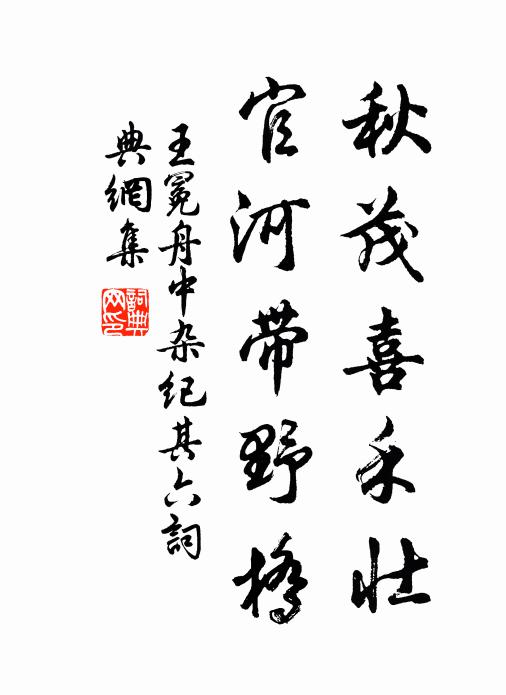 秋茂喜禾壮
官河带野橋
王冕舟中杂纪其六詞
典網集
詞典网印